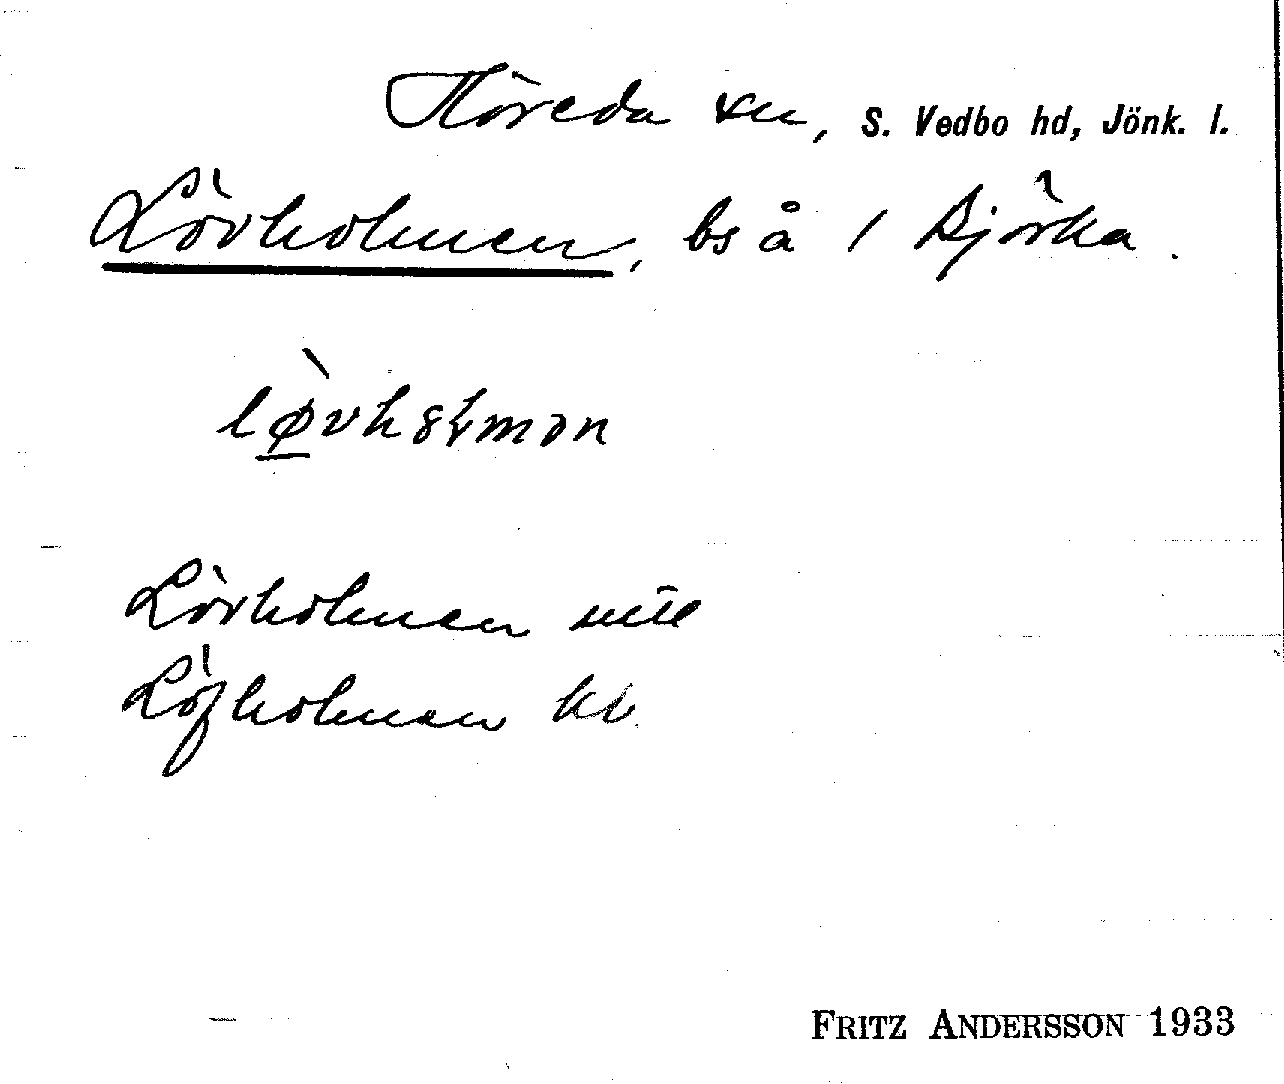 Höreda sn, S. Vedbo hd, Jönk. l.
Lövholmen, bs å 1 Björka.
lø̀vhɔłmən
Lövholmen
Löfholmen kb
FRITZ ANDERSSON 1933